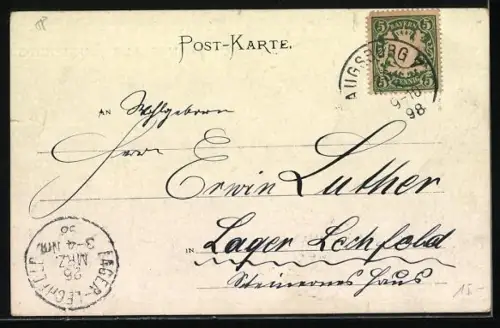 POST-KARTE.
5 BAYERN 5
5 PFENNIG 5
AUGSBURG
98
AN Wohlgeborn
Herrn
Erwin Luther
IN Lager Lechfeld
Steinernes Haus
LAGER-LECHFELD
26
MRZ.
3-4 NM.
98
15.-